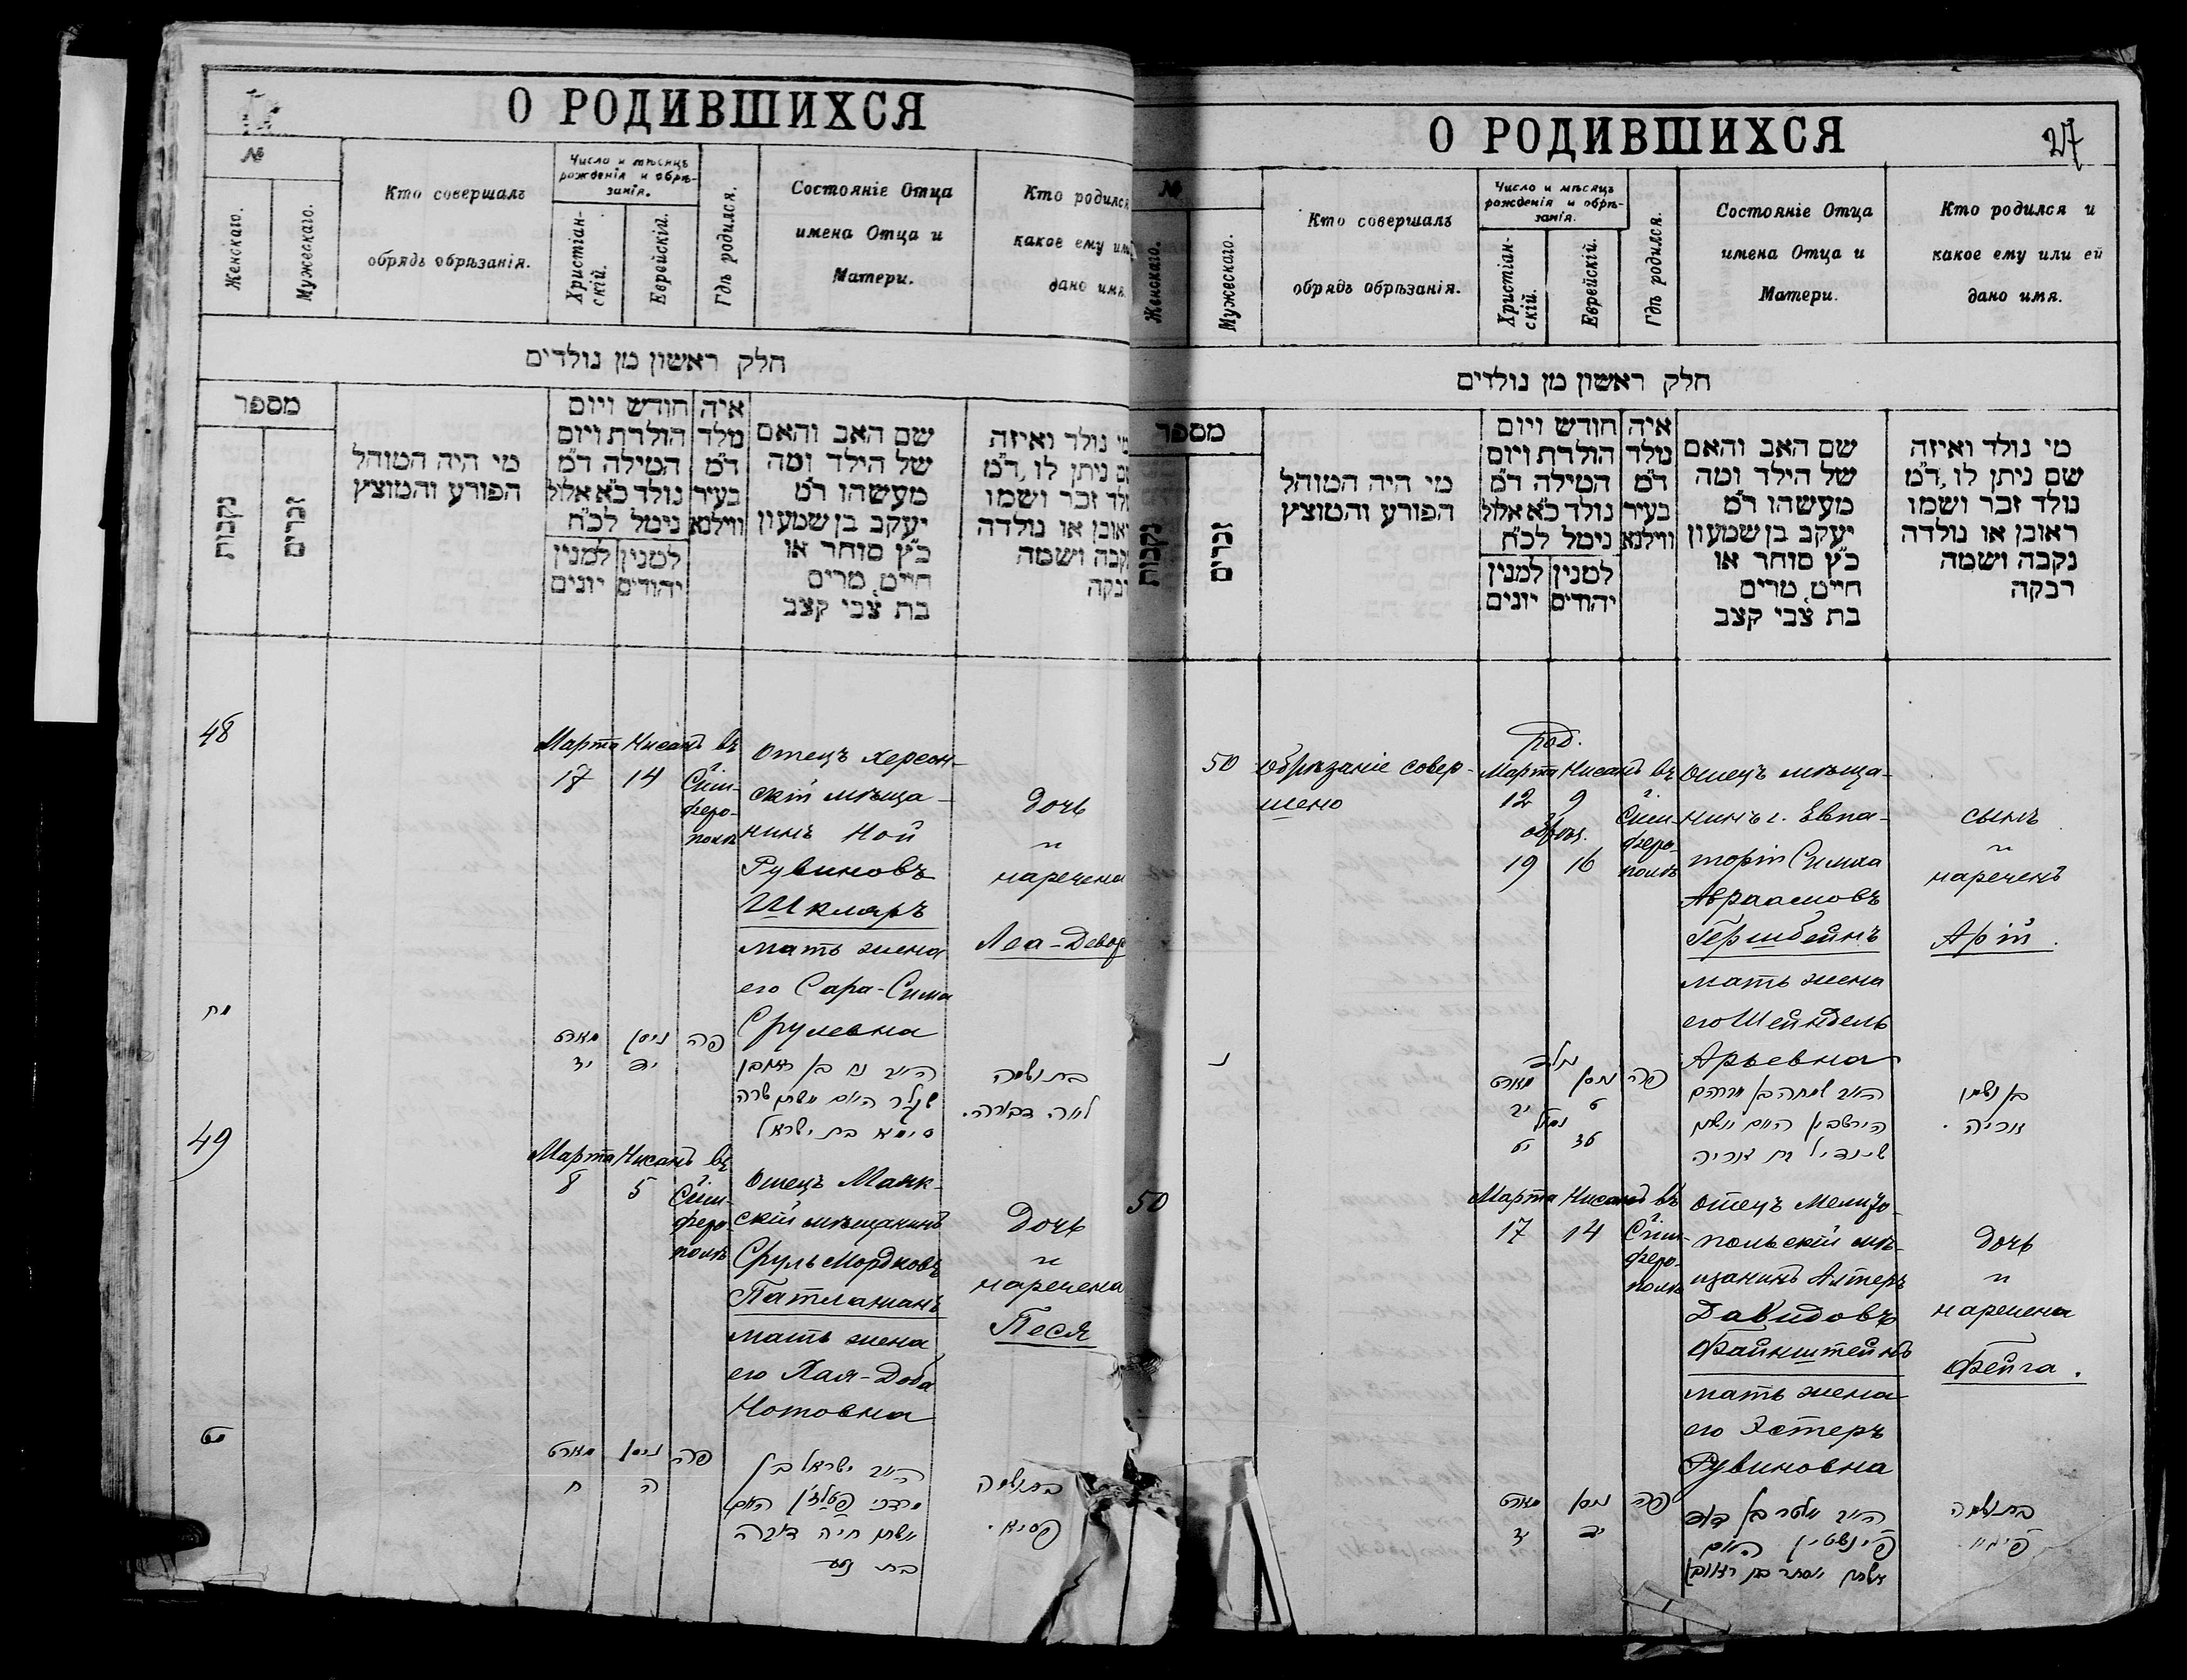 О РОДИВШИХСЯ
№
Женскаго.
Мужескаго.
Кто совершалъ
обрядъ обрѣзанія.
Число и мѣсяцъ
рожденія и обрѣ-
занія.
Христіан-
скій.
Еврейскій.
Гдѣ родился.
Состояніе Отца
имена Отца и
Матери.
Кто родился
какое ему или
дано имя.
חלק ראשון מן נולדים
מספר
נקבות
זכרים
מי היה המוהל
הפורע והמוצץ
חודש ויום
הולדת ויום
המילה ד"מ
נולד כ"א אלול
נימל לכ"ח
למנין
יהודים
למנין
יונים
איה
מלד
ד"מ
בעיר
ווילנא
שם האב והאם
של הילד ומה
מעשהו ד"מ
יעקב בן שמעון
כ"ץ סוחר או
חייט, מרים
בת צבי קצב
מי נולד ואיזה
שם ניתן לו, ד"מ
נולד זכר ושמו
ראובן או נולדה
נקבה ושמה
רבקה
48
Марта
17
Нисанъ
14
въ г.
Сим-
феро-
полѣ
Отецъ херсон-
скій мѣща-
нинъ Ной
Рувиновъ
Шкляръ
мать жена
его Сара-Сима
Срулевна
Дочь
и
наречена
Леа-Двор
מח
מארט
יז
ניסן
יד
פה
האב נח בן ראובן
שקלר האם אשתו שרה
סימא בת ישראל
בת ושמה
לאה דבורה.
49
Марта
8
Нисанъ
5
въ г.
Сим-
феро-
полѣ
Отецъ Маяк-
скій мѣщанинъ
Сруль Мордковъ
Патлажанъ
мать жена
его Хая-Доба
Нотовна
Дочь
и
наречена
Песя
מט
מארט
ח
ניסן
ה
פה
האב ישראל בן
מרדכי פטלזן האם
אשתו חיה דובה
בת נטע
בת ושמה
פסיא.
О РОДИВШИХСЯ
27
№
Женскаго.
Мужескаго.
Кто совершалъ
обрядъ обрѣзанія.
Число и мѣсяцъ
рожденія и обрѣ-
занія.
Христіан-
скій.
Еврейскій.
Гдѣ родился.
Состояніе Отца
имена Отца и
Матери.
Кто родился и
какое ему или ей
дано имя.
חלק ראשון מן נולדים
מספר
נקבות
זכרים
מי היה המוהל
הפורע והמוצץ
חודש ויום
הולדת ויום
המילה ד"מ
נולד כ"א אלול
נימל לכ"ח
למנין
יהודים
למנין
יונים
איה
מלד
ד"מ
בעיר
ווילנא
שם האב והאם
של הילד ומה
מעשהו ד"מ
יעקב בן שמעון
כ"ץ סוחר או
חייט, מרים
בת צבי קצב
מי נולד ואיזה
שם ניתן לו, ד"מ
נולד זכר ושמו
ראובן או נולדה
נקבה ושמה
רבקה
50
Обрѣзаніе совер-
шено
Род.
Марта
12
Нисанъ
9
обрѣз.
19
16
въ г.
Сим-
феро-
полѣ
Отецъ мѣща-
нинъ г. Евпа-
торіи Симха
Авраамовъ
Гершбейнъ
мать жена
его Шейндель
Арьевна
сынъ
и
нареченъ
Арій.
נ
נולד
מארט
יב
ניסן
ט
נמול
יט
טז
פה
האב שמחה בן אברהם
הירשביין האם אשתו
שיינדיל בת אריה
בן ושמו
אריה.
50
Марта
17
Нисанъ
14
въ г.
Сим-
феро-
полѣ
Отецъ Мелито-
польскій мѣ-
щанинъ Алтеръ
Давидовъ
Файнштейнъ
мать жена
его Эстеръ
Рувиновна
Дочь
и
наречена
Фейга.
מארט
יז
ניסן
יד
פה
האב אלטר בן דוד
פיינשטיין האם
אשתו אסתר בת ראובן
בת ושמה
פייגא.